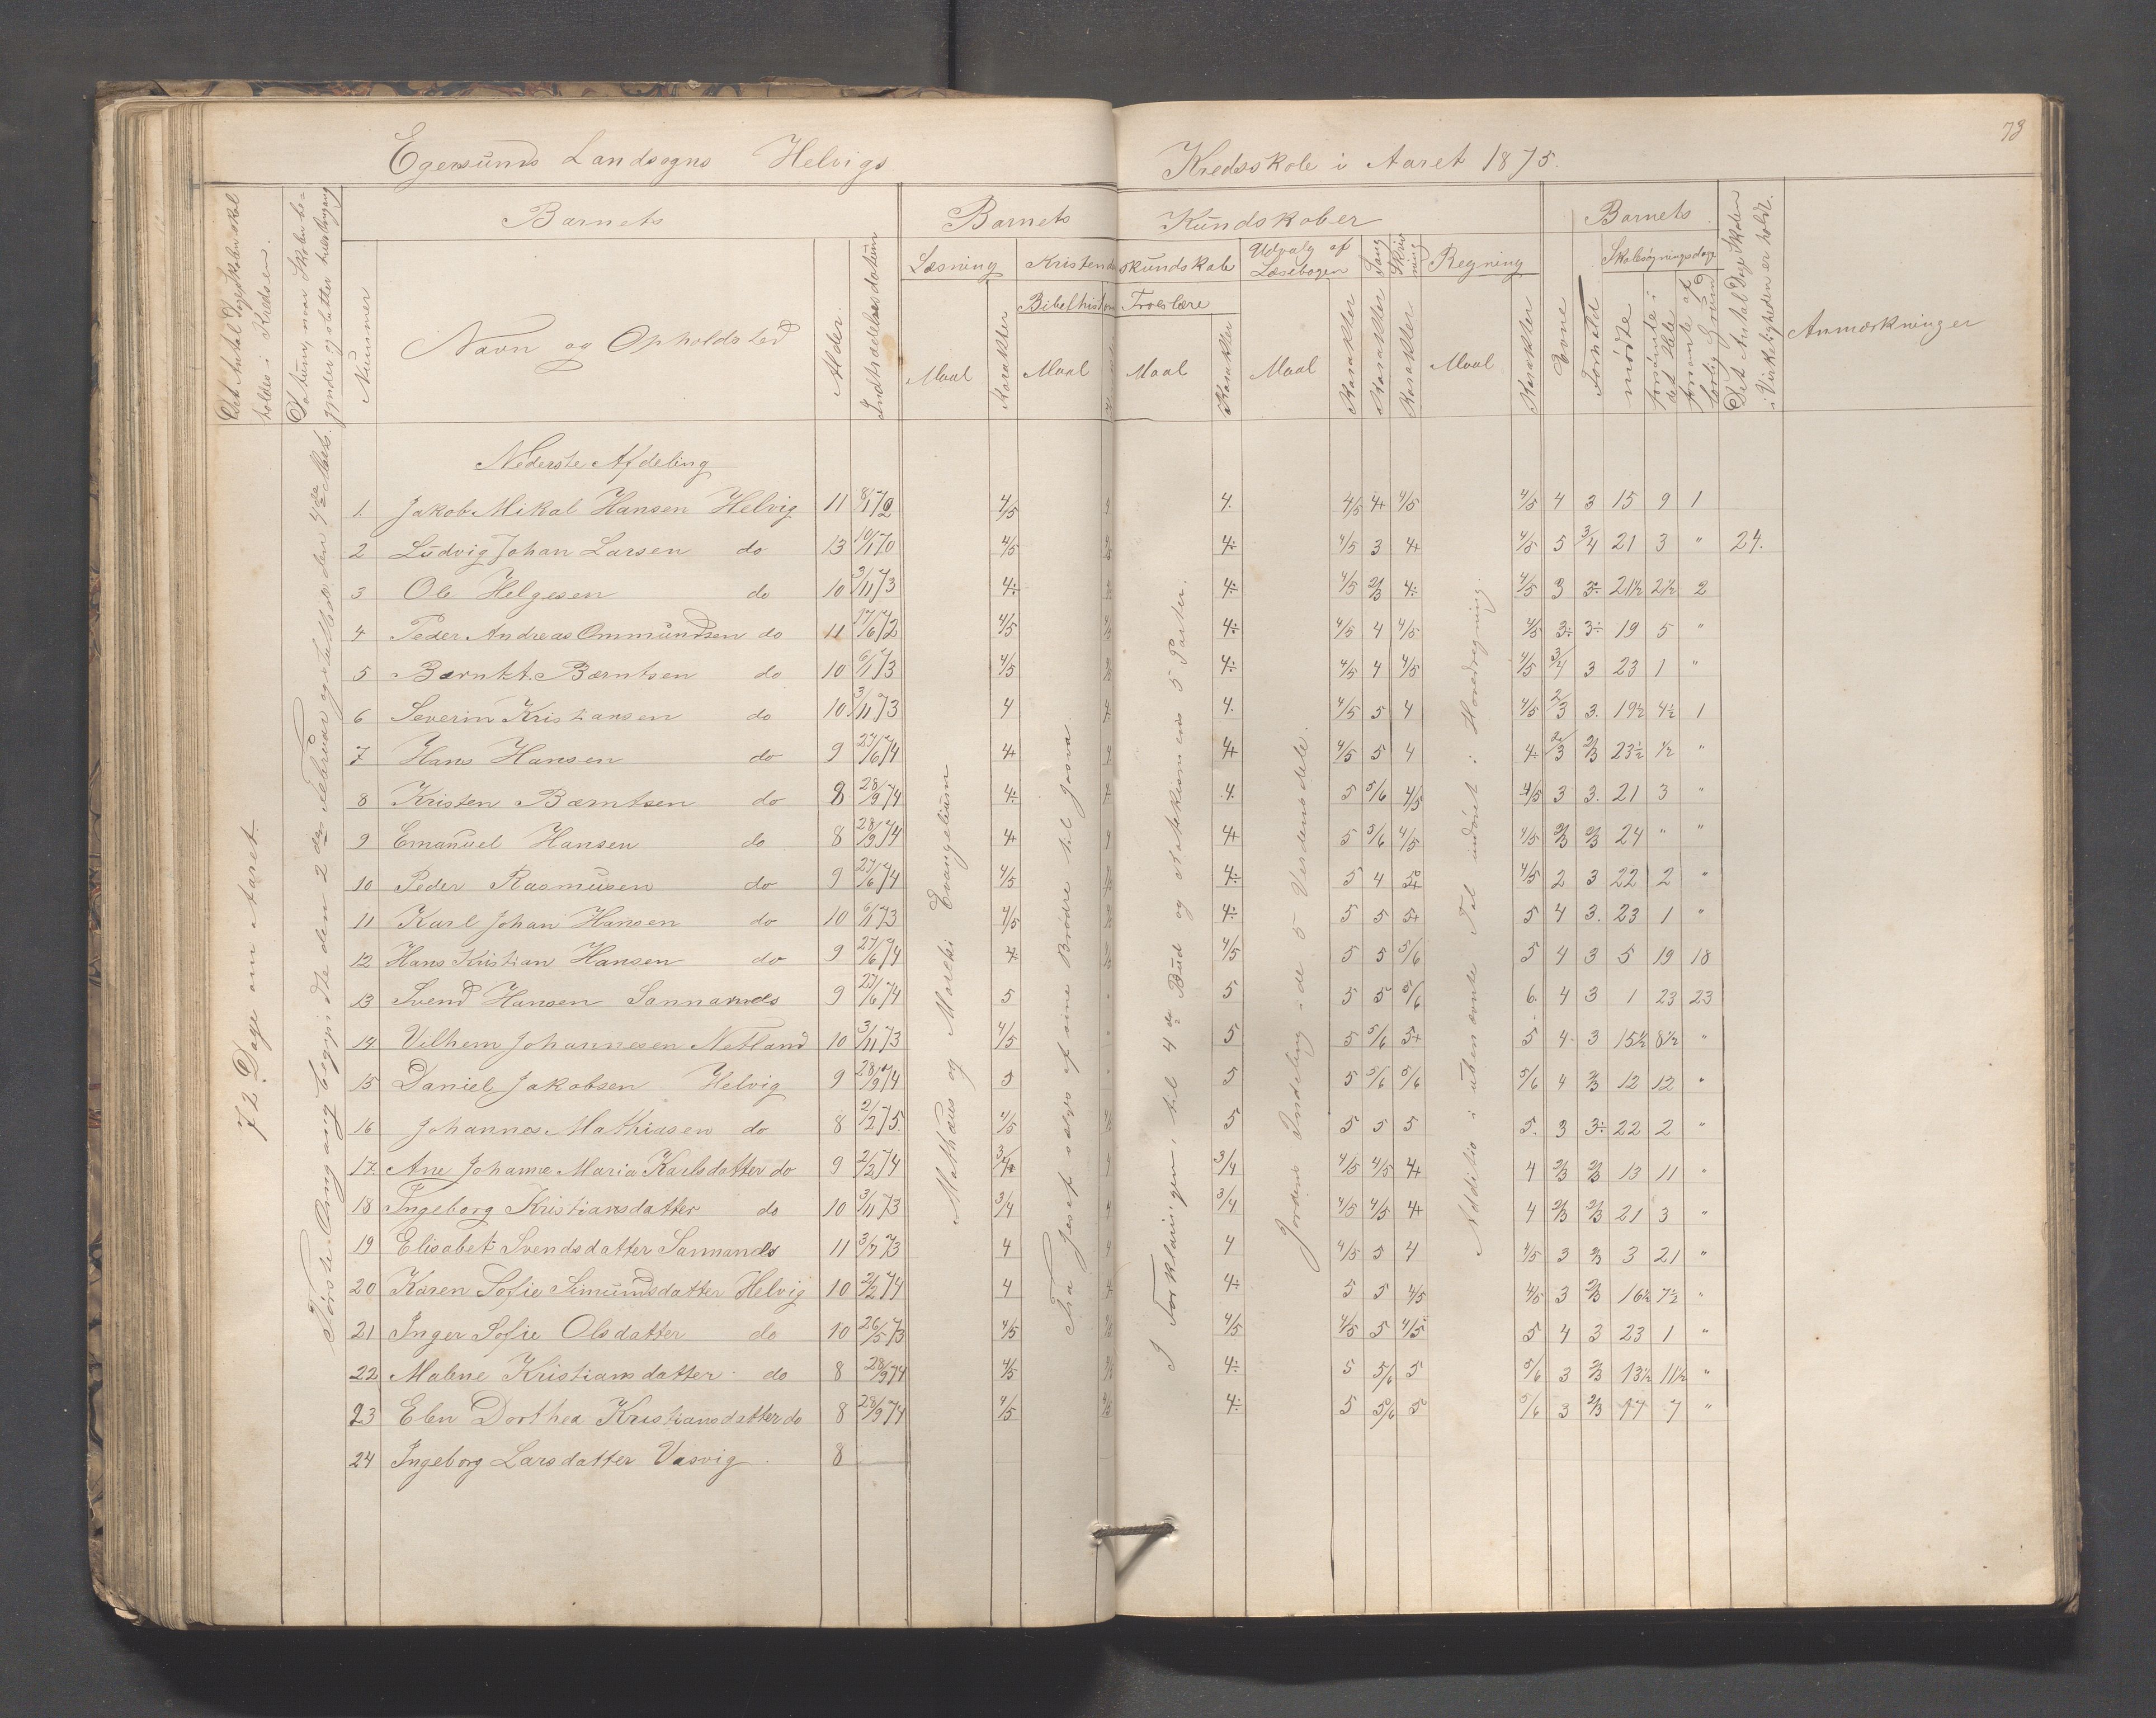 73
Egersunds Landsogns Helvigs Kredsskole i Aaret 1875.
Det Antal Dage Skolen skal holdes i Kredsen.
Datum, naar Skolen be-
gynder og slutter hver Omgang
Barnets
Nummer
Navn og Opholdsted
Alder.
Indtrædelsesdatum
Barnets Kundskaber
Læsning
Maal
Karakter
Kristendomskundskab
Bibelhistorie
Maal
Troeslære
Maal
Karakter
Udvalg af Læsebogen
Maal
Karakter
Sang
Karakter
Skrivning
Karakter
Regning
Maal
Karakter
Barnets
Evne
Forhold
Skolesøgningsdage
mødte
forsømte i det Hele
forsømte af lovlig Grund
Det Antal Dage Skolen i Virkeligheden er holdt.
Anmærkninger
72 Dage om Aaret.
Første Omgang begyndte den 2den Februar og sluttedes den 4de Marts.
Mathæus og Marcki Evangelium
Fra Josef sælges af sine Brødre til Josva
I Forklaringen, til 4de Bud og Katekismens 5 Parter.
Jordens Inddeling i de 5 Verdensdele.
Additio i ubenævnte Tal indøvet i Hovedregning.
Nederste Afdeling
1. Jakob Mikal Hansen Helvig 11 8/1 72 4/5 4 4. 4/5 4+ 4/5 4/5 4 3 15 9 1
2 Ludvig Johan Larsen do 13 10/1 70 4/5 4/5 4÷ 4/5 3 4+ 4/5 5 3/4 21 3 " 24.
3 Ole Helgesen do 10 3/11 73 4÷ 4÷ 4/5 2/3 4÷ 4/5 3 3÷ 21½ 2½ 2
4 Peder Andreas Ommundsen do 11 17/6 72 4/5 4/5 4÷ 4/5 4 4/5 4/5 3÷ 3÷ 19 5 "
5 Bærnt A. Bærntsen do 10 6/1 73 4/5 4÷ 4/5 4 4/5 4/5 3/4 3 23 1 "
6 Severin Kristiansen do 10 3/11 73 4 4. 4. 4/5 5 4 4/5 2/3 3. 19½ 4½ 1
7 Hans Hansen do 9 27/6 74 4+ 4 4+ 4/5 5 4 4÷ 2/3 2/3 23½ ½ "
8 Kristen Bærntsen do 8 28/9 74 4÷ 4. 4. 5 5/6 4/5 4/5 3 3. 21 3 "
9 Emanuel Hansen do 8 28/9 74 4+ 4 4+ 5 5/6 4/5 4/5 2/3 2/3 24 " "
10 Peder Rasmusen do 9 27/6 74 4/5 4÷ 5 4 5+ 4/5 2 3 22 2 "
11 Karl Johan Hansen do 10 6/1 73 4/5 4÷ 5 5 5+ 5 4 3. 23 1 "
12 Hans Kristian Hansen do 9 27/6 74 4÷ 4/5 5 5 5/6 5 4 3 5 19 18
13 Svend Hansen Sannarnds 9 27/6 74 5 5 5 5 5/6 6. 4 3 1 23 23
14 Vilhem Johannesen Netland 10 3/11 73 4/5 5 5 5/6 5+ 5 4 3 15½ 8½ "
15 Daniel Jakobsen Helvig 9 28/9 74 5 5 5 5/6 5/6 5/6 4 2/3 12 12 "
16 Johannes Mathiasen do 8 2/2 75. 4/5 4/5 5 5 5 5 5. 3 3÷ 22 2 "
17. Ane Johanne Maria Karlsdatter do 9 2/2 74 3/4 4 3/4 4/5 4/5 4+ 4 2/3 2/3 13 11 "
18 Ingeborg Kristiansdatter do 10 3/11 73 3/4 4 3/4 4/5 4/5 4+ 4 2/3 2/3 21 3 "
19 Elisabet Svendsdatter Sannands 11 3/7 73 4 4 4 4/5 5 4 4/5 3 2/3 3 21 "
20 Karen Sofie Simundsdatter Helvig 10 2/2 74 4 4 4÷ 5 5 4/5 4/5 3 2/3 16½ 7½ "
21 Inger Sofie Olsdatter do 10 26/5 73 4/5 4/5 4/5 5 4/5 5 4 3 23 1 "
22 Malene Kristiansdatter do 8 28/9 74 4/5 4÷ 5 5/6 5 5/6 3 2/3 13½ 11½ "
23 Elen Dorthea Kristiansdatter do 8 28/9 74 4/5 4/5 4÷ 5 5/6 5 5/6 3 2/3 17 7 "
24 Ingeborg Larsdatter Vasvig 8